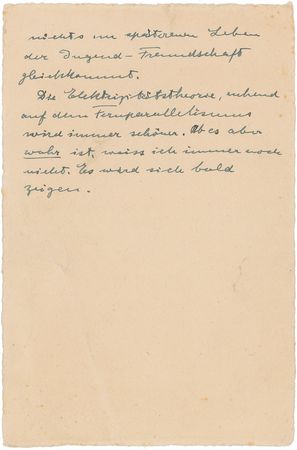 nichts im späteren Leben
der Jugend-Freundschaft
gleichkommt.
Die Elektrizitätstheorie, ruhend
auf dem Fernparallelismus
wird immer schöner. Ob es aber
wahr ist, weiss ich immer noch
nicht. Es wird sich bald
zeigen.